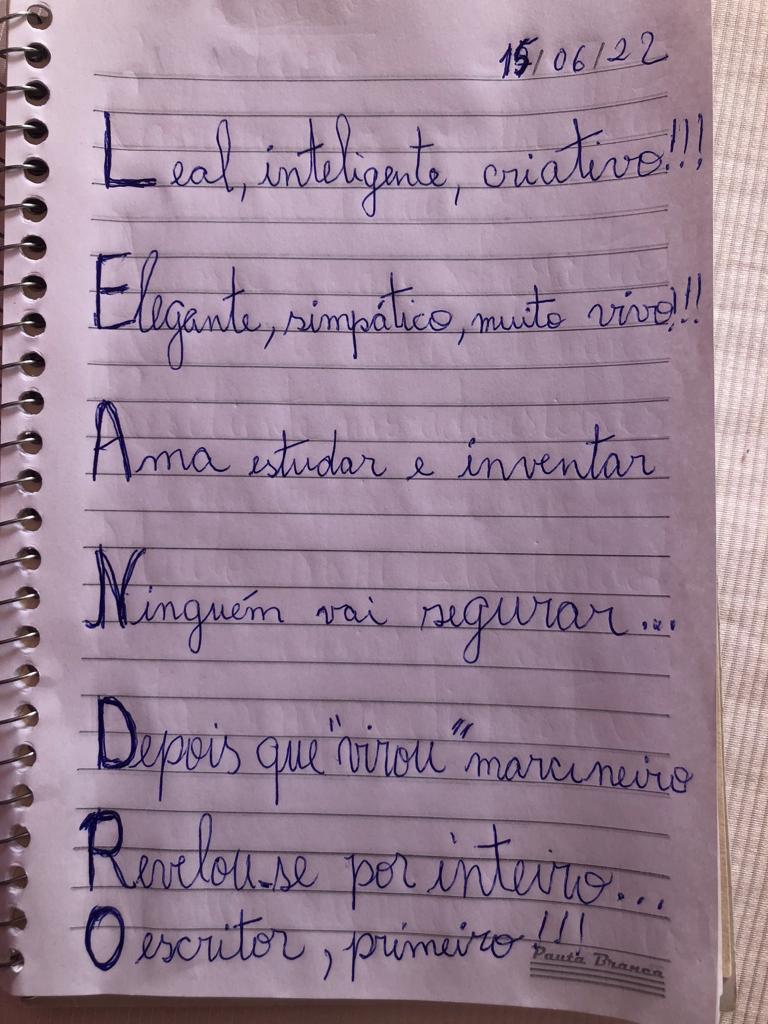 15/06/22
Leal, inteligente, criativo!!!
Elegante, simpático, muito vivo!!!
Ama estudar e inventar
Ninguém vai segurar...
Depois que "virou" marcineiro
Revelou-se por inteiro...
O escritor, primeiro!!!
Pauta Branca